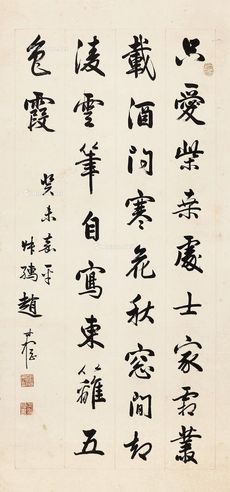 只愛柴桑處士家霜叢
載酒問寒花秋窗閒却
淩雲筆自寫東籬五
色霞
癸未嘉平
叔孺趙